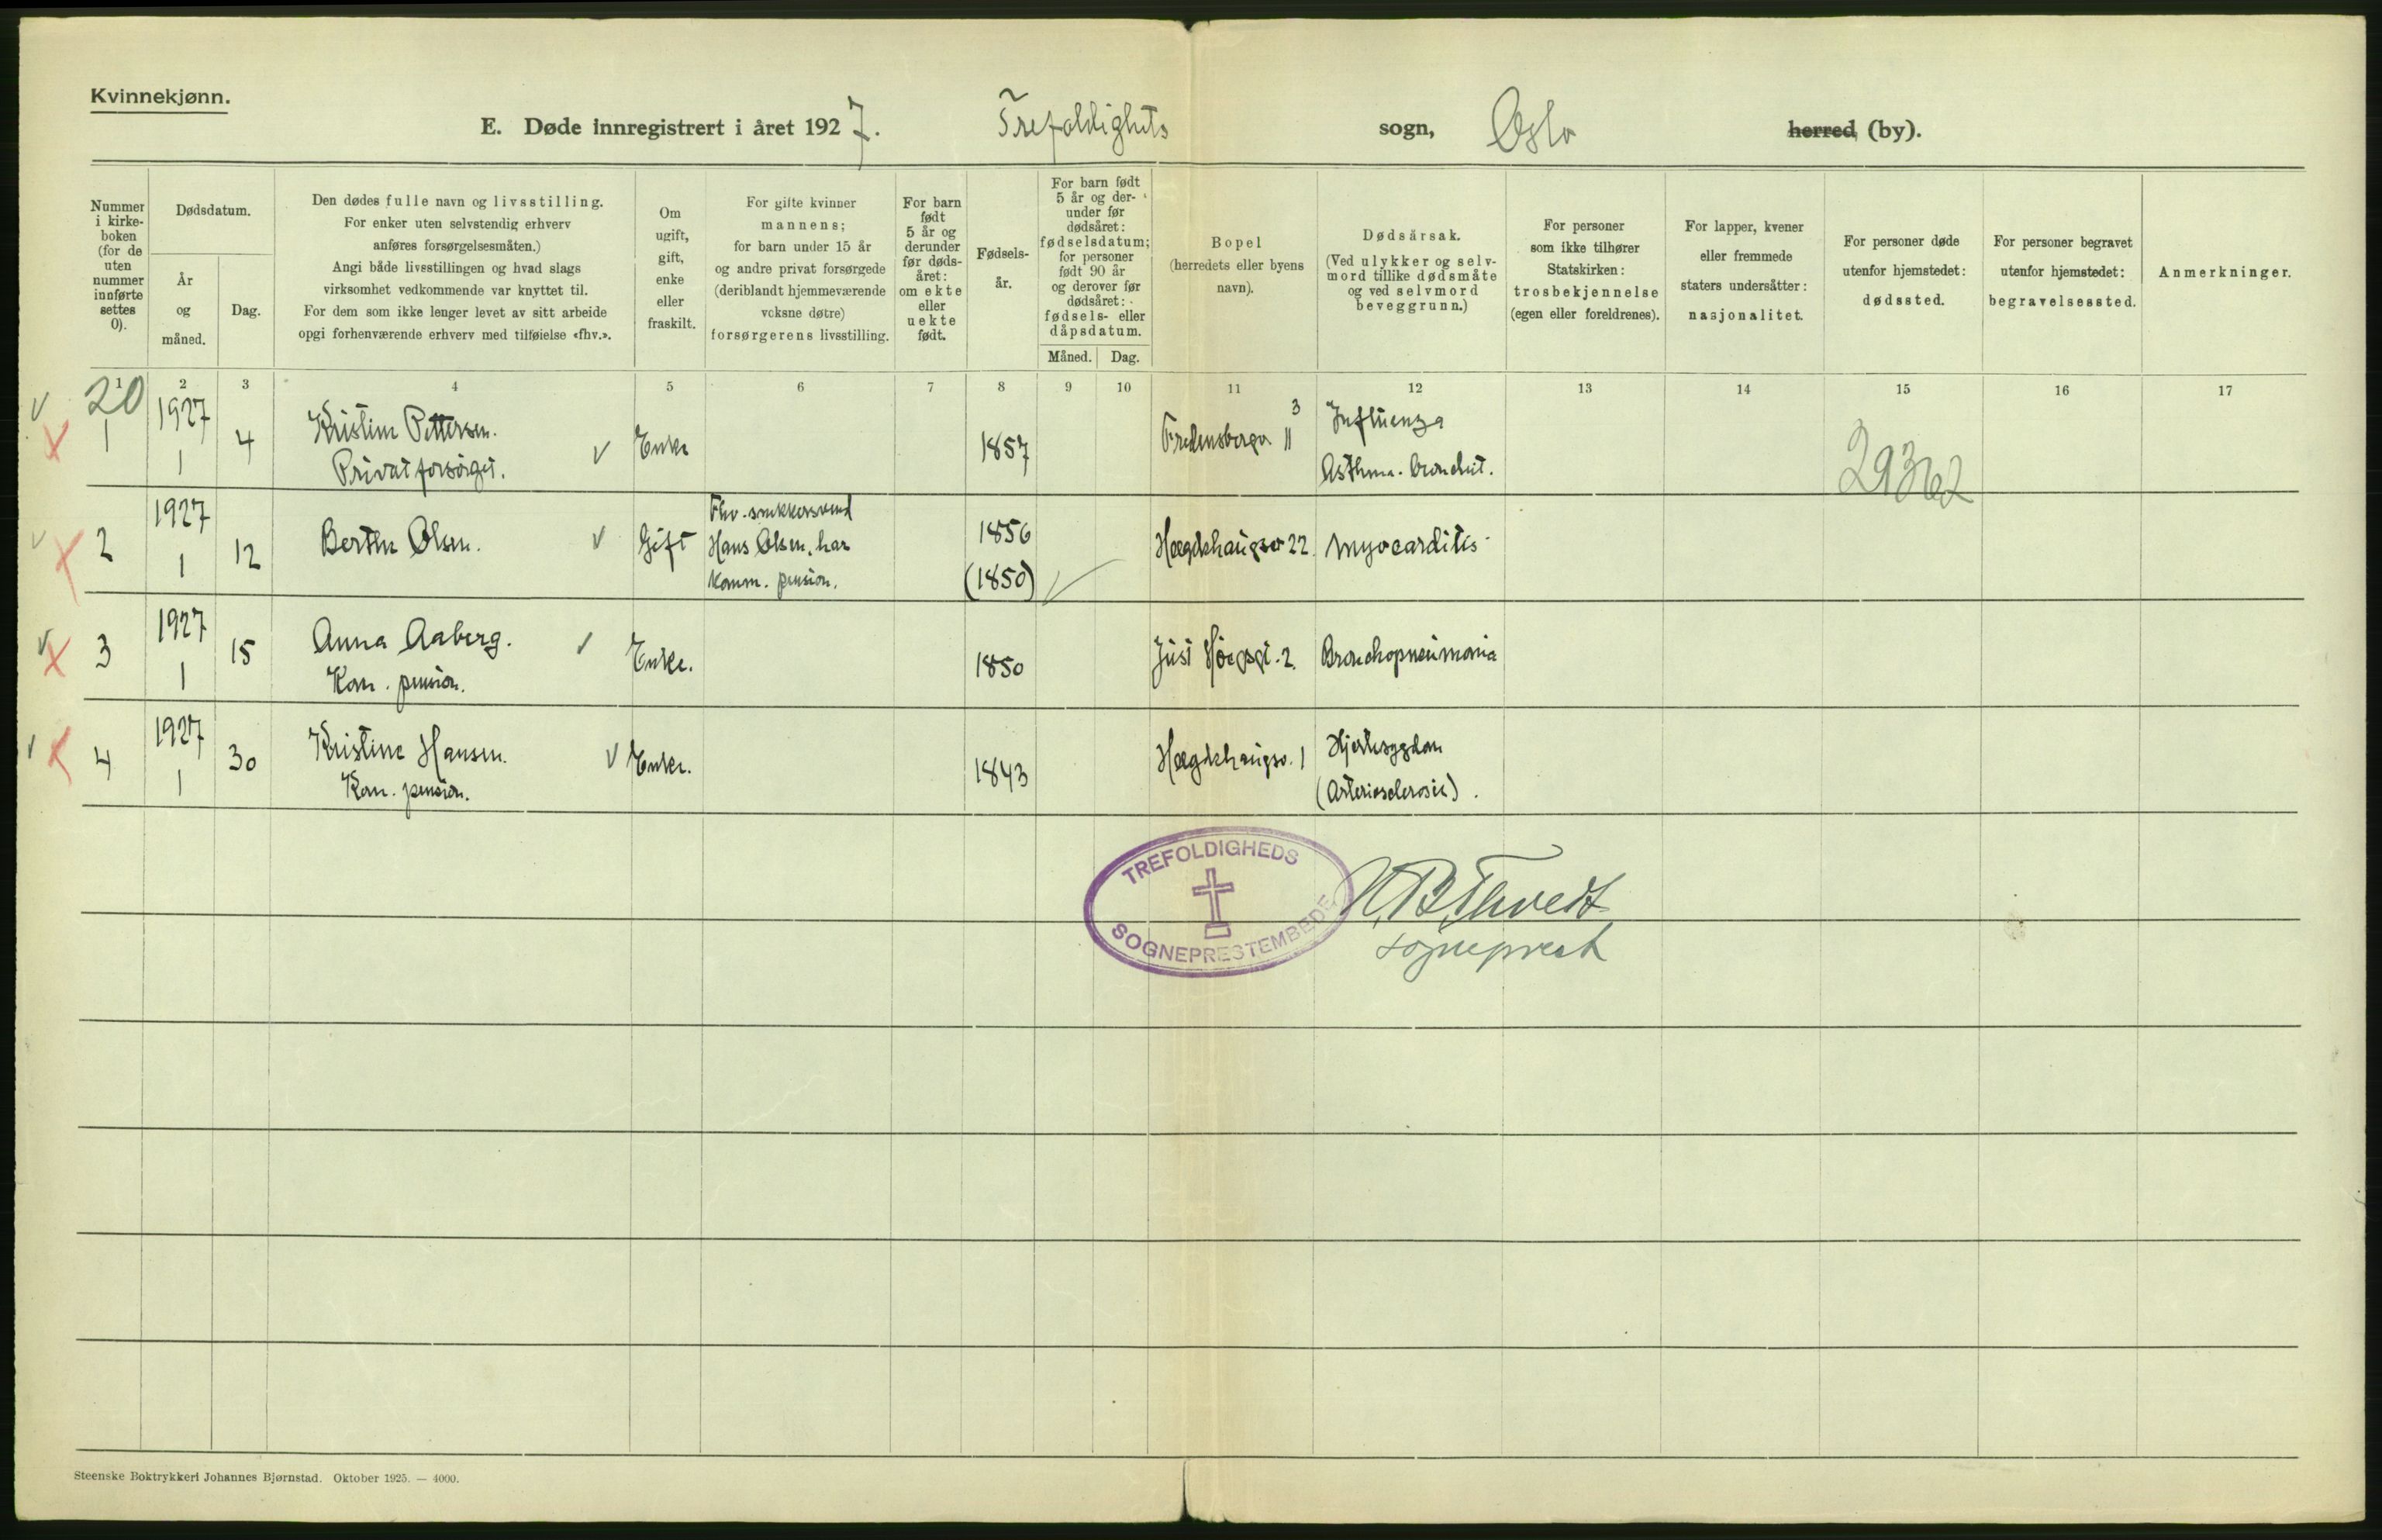 Kvinnekjønn.
E. Døde innregistrert i året 1927. Trefoldighets sogn, Oslo herred (by).
Nummer i kirke- boken (for de uten nummer innførte settes 0).
Dødsdatum.
År og måned.
Dag.
Den dødes fulle navn og livsstilling.
For enker uten selvstendig erhverv
anføres forsørgelsesmåten.)
Angi både livsstillingen og hvad slags
virksomhet vedkommende var knyttet til.
For dem som ikke lenger levet av sitt arbeide
opgi forhenværende erhverv med tilføielse «fhv.».
Om ugift, gift, enke eller fraskilt.
For gifte kvinner
mannens;
for barn under 15 år
og andre privat forsørgede
(deriblandt hjemmeværende
voksne døtre)
forsørgerens livsstilling.
For barn født 5 år og derunder før døds- året: om ekte eller uekte født.
Fødsels- år.
For barn født 5 år og der- under før dødsåret: fødselsdatum; for personer født 90 år og derover før dødsåret: fødsels- eller dåpsdatum.
Måned. Dag.
Bopel
(herredets eller byens
navn).
Dødsårsak.
(Ved ulykker og selv-
mord tillike dødsmåte
og ved selvmord
beveggrunn.)
For personer
som ikke tilhører
Statskirken:
trosbekjennelse
(egen eller foreldrenes).
For lapper, kvener
eller fremmede
staters undersåtter:
nasjonalitet.
For personer døde
utenfor hjemstedet:
dødssted.
For personer begravet
utenfor hjemstedet:
begravelsessted.
Anmerkninger.
1 2 3 4 5 6 7 8 9 10 11 12 13 14 15 16 17
20
1 1927 1 4 Kristine Pettersen. Privat forsørget. Enke 1857 Fredensborgv 11 3 Influenza Asthma. bronchit.
29362
2 1927 1 12 Berthe Olsen. Gift Fhv. snekkersvend Hans Olsen, har komm. pension. 1856 (1850) Hægdehaugsv 22. Myocarditis
3 1927 1 15 Anna Aaberg. Kom. pension. Enke. 1850 Just Høegsgt. 2. Bronchopneumonia
4 1927 1 30 Kristine Hansen. Kom. pension. Enke. 1843 Hægdehaugsv. 1 Hjertesygdom (Arteriosclerosis).
TREFOLDIGHEDS
SOGNEPRESTEMBEDE
sogneprest
Steenske Boktrykkeri Johannes Bjørnstad. Oktober 1925. — 4000.